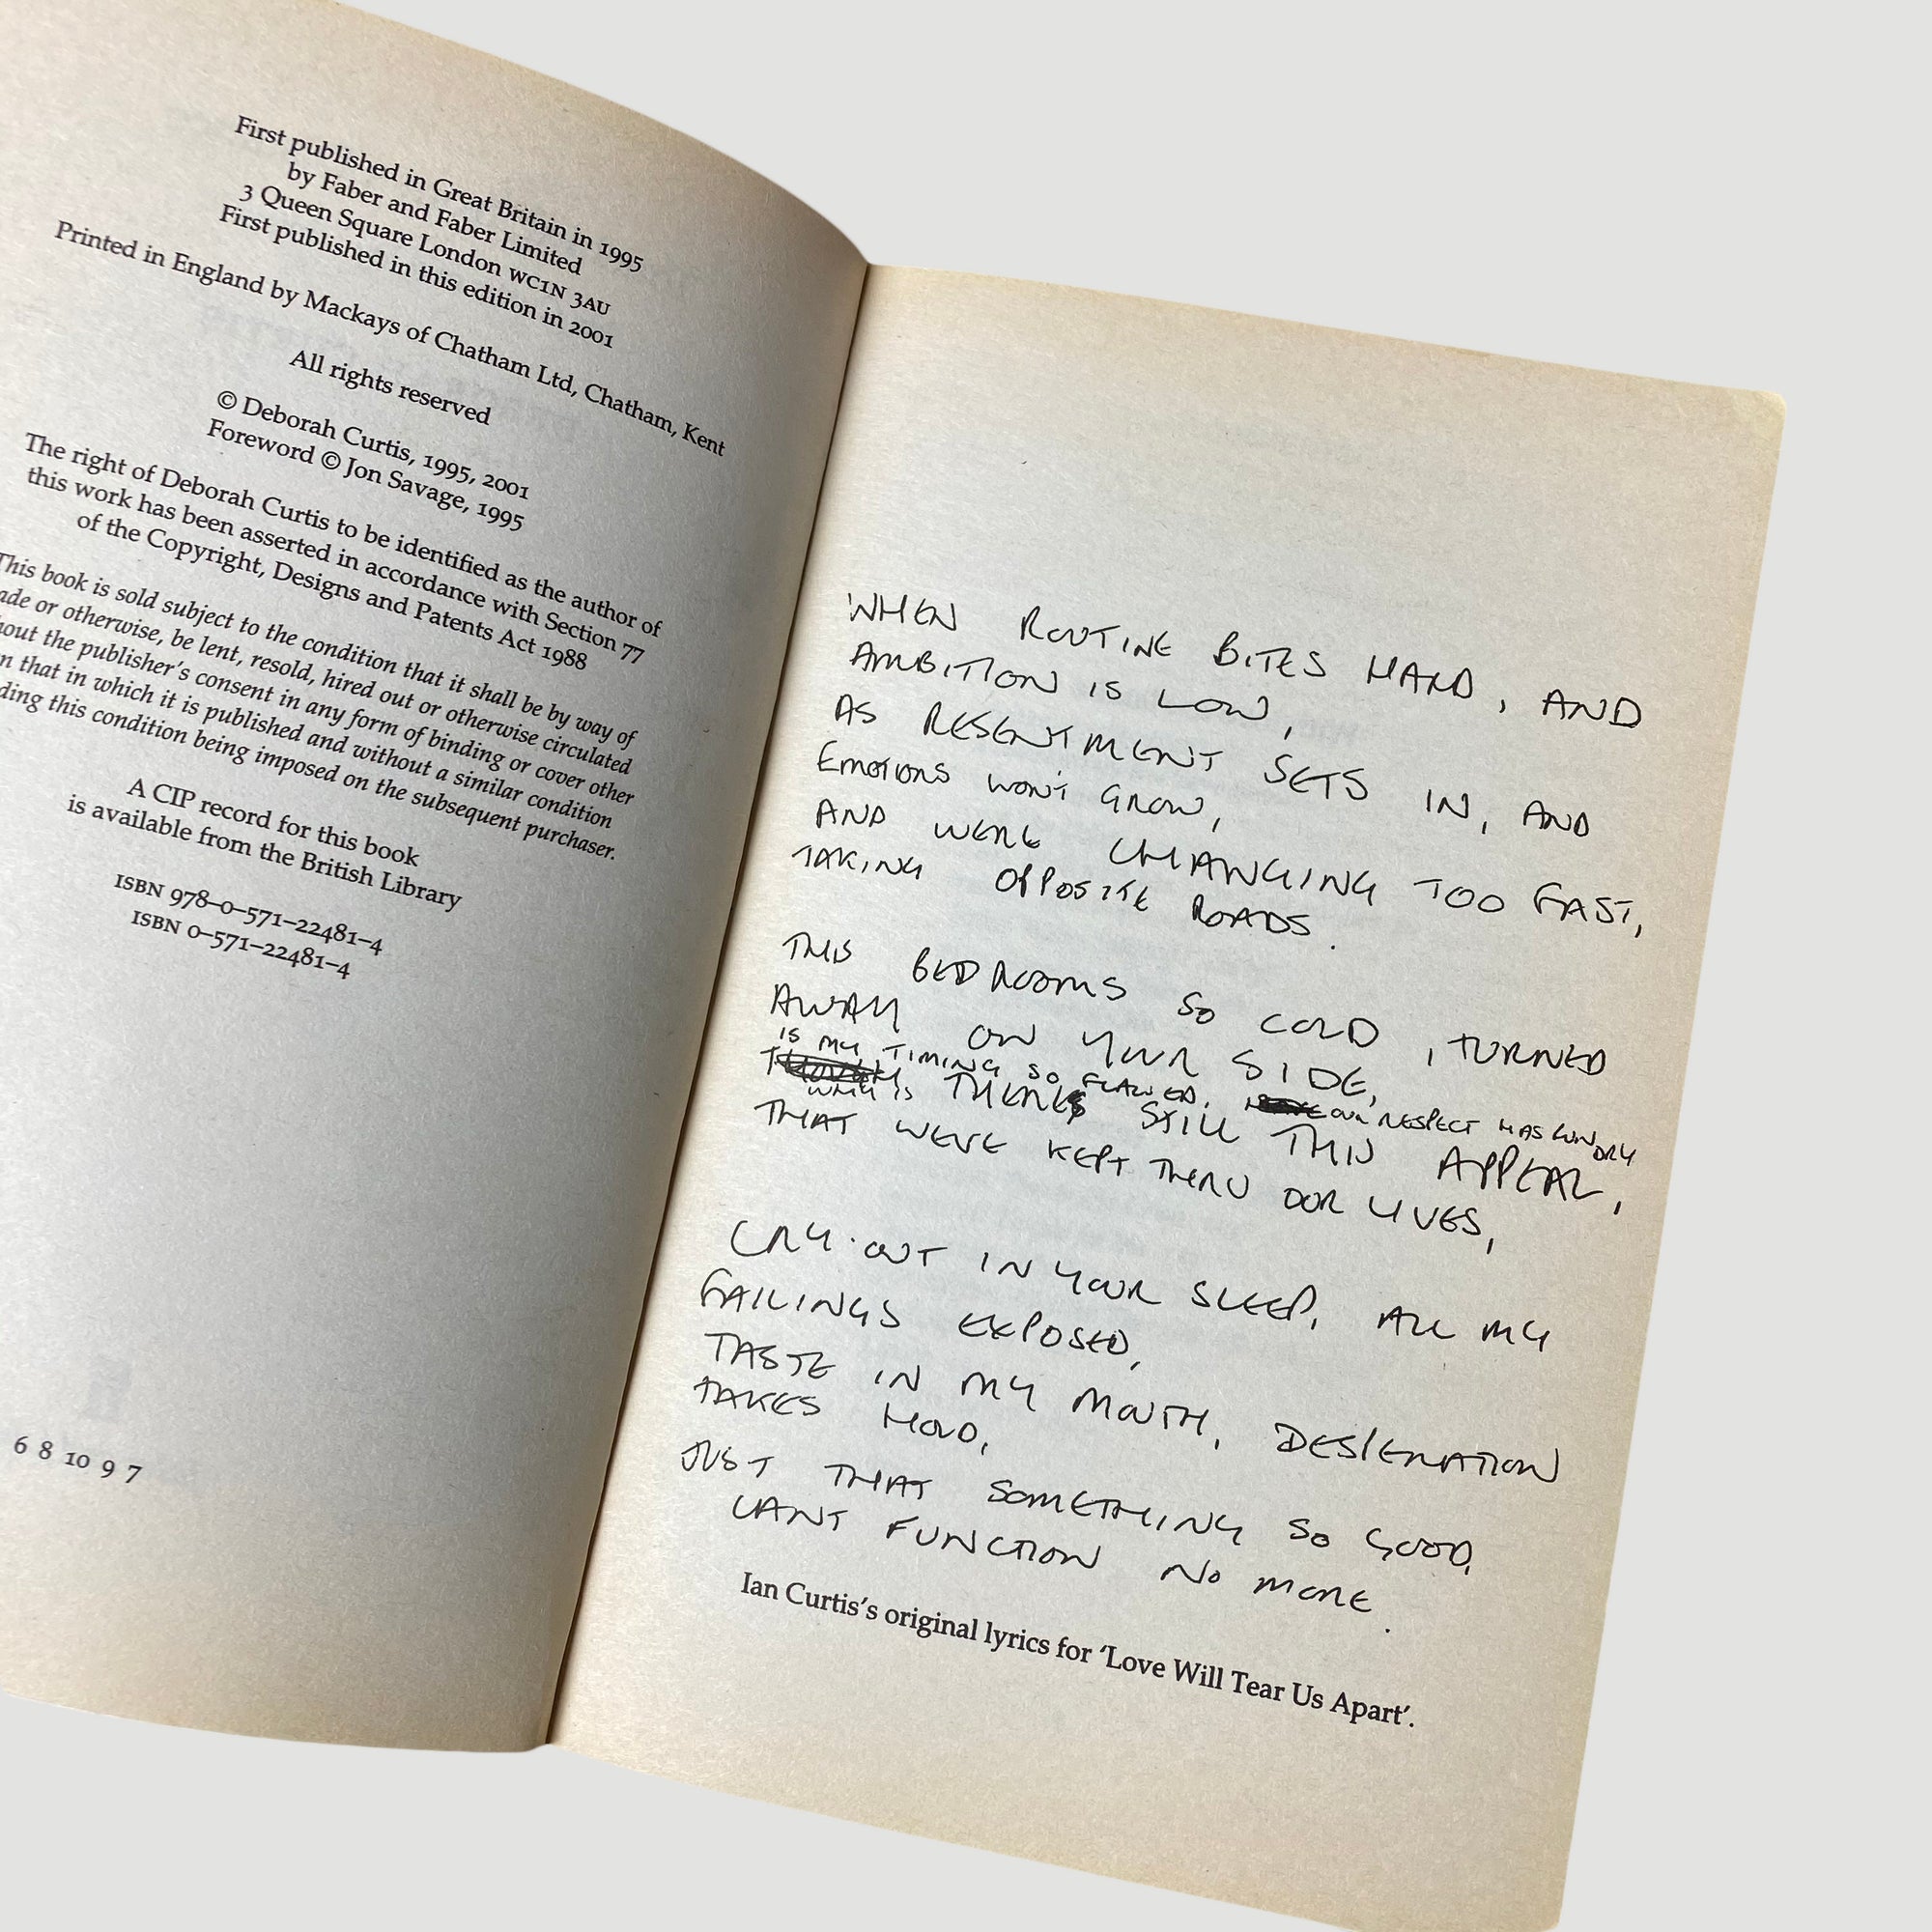 First published in Great Britain in 1995
by Faber and Faber Limited
3 Queen Square London WC1N 3AU
First published in this edition in 2001
Printed in England by Mackays of Chatham Ltd, Chatham, Kent
All rights reserved
© Deborah Curtis, 1995, 2001
Foreword © Jon Savage, 1995
The right of Deborah Curtis to be identified as the author of
this work has been asserted in accordance with Section 77
of the Copyright, Designs and Patents Act 1988
This book is sold subject to the condition that it shall be by way of
or otherwise, be lent, resold, hired out or otherwise circulated
the publisher's consent in any form of binding or cover other
that in which it is published and without a similar condition
this condition being imposed on the subsequent purchaser.
A CIP record for this book
is available from the British Library
ISBN 978–0–571–22481–4
ISBN 0–571–22481–4
6 8 10 9 7
WHEN ROUTINE BITES HARD, AND
AMBITION IS LOW,
AS RESENTMENT SETS IN, AND
EMOTIONS WON'T GROW,
AND WERE CHANGING TOO FAST,
TAKING OPPOSITE ROADS.
THIS BEDROOMS SO COLD, TURNED
AWAY ON YOUR SIDE,
IS MY TIMING SO FLAWED. OUR RESPECT HAS RUN DRY
WHY IS THERE STILL THIS APPEAL,
THAT WEVE KEPT THRU OUR LIVES,
CRY OUT IN YOUR SLEEP, ALL MY
FAILINGS EXPOSED,
TASTE IN MY MOUTH, DESPERATION
TAKES HOLD,
JUST THAT SOMETHING SO GOOD,
CANT FUNCTION NO MORE.
Ian Curtis's original lyrics for 'Love Will Tear Us Apart'.